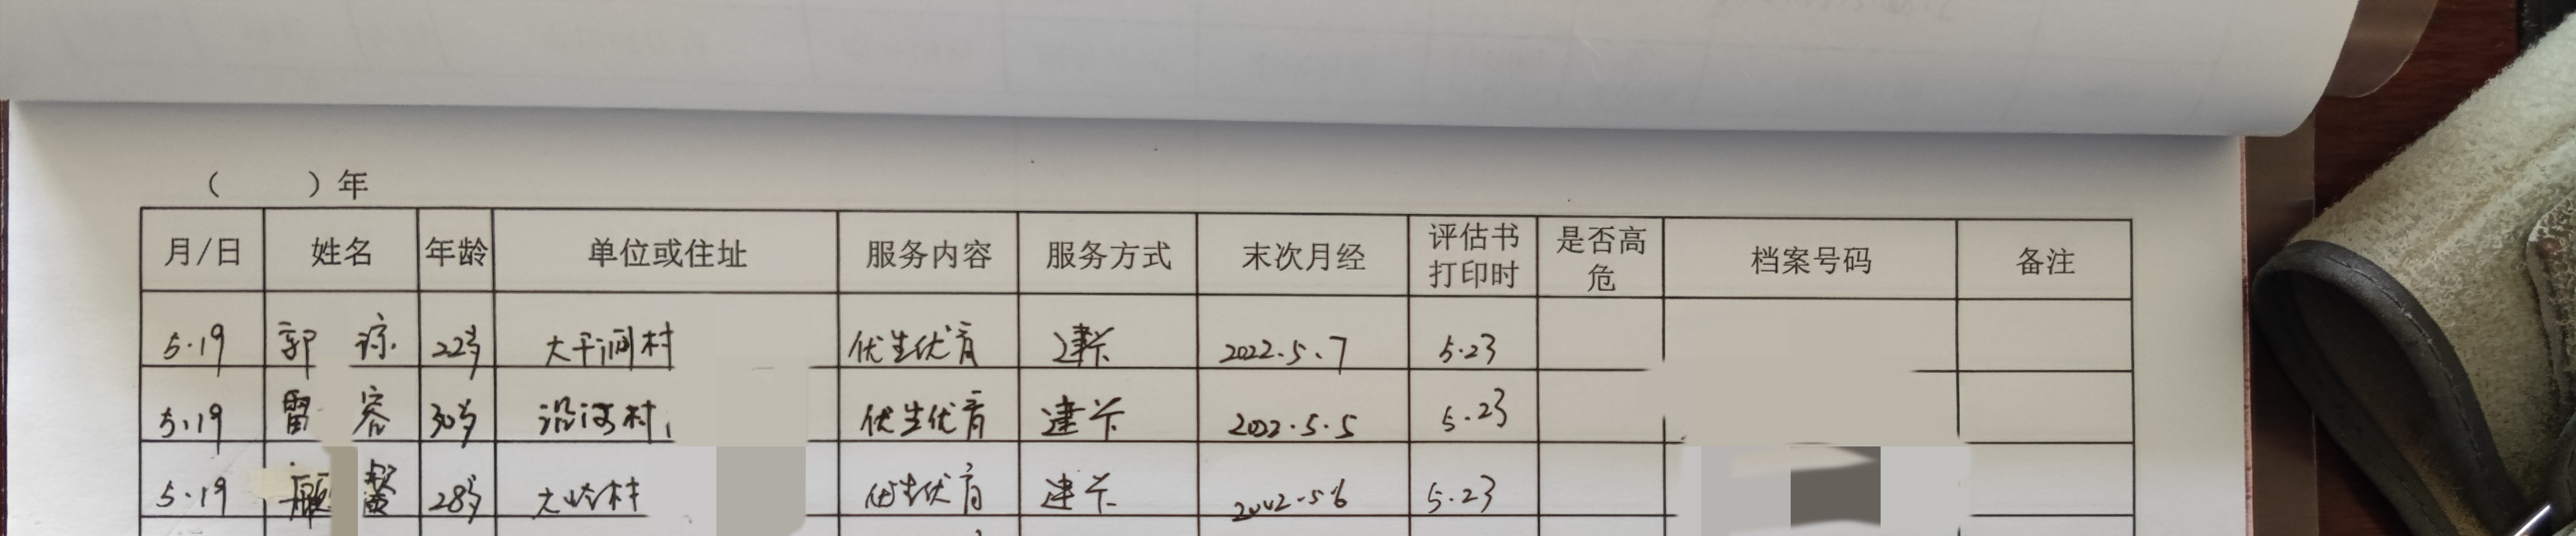 （ ）年
月/日 姓名 年龄 单位或住址 服务内容 服务方式 末次月经 评估书打印时 是否高危 档案号码 备注
5.19 郭 琼 22岁 大平涧村 优生优育 建卡 2022.5.7 5.23
5.19 雷 容 30岁 沿河村 优生优育 建卡 2022.5.5 5.23
5.19 28岁 大岭村 优生优育 建卡 2022.5.6 5.23